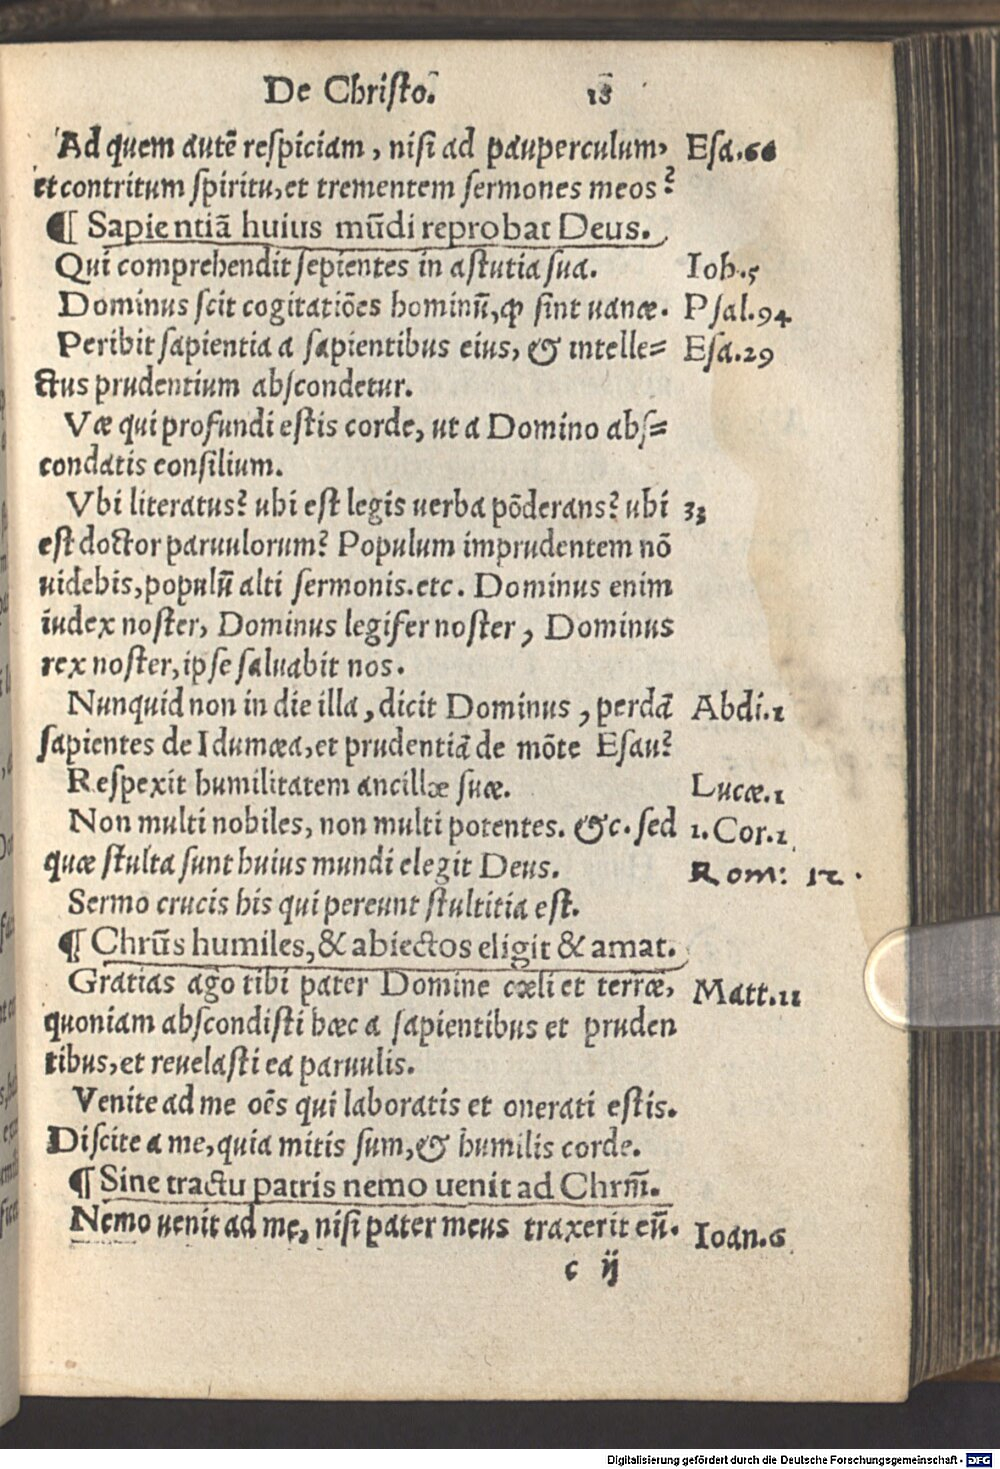 De Christo. 18
Ad quem autē respiciam, nisi ad pauperculum, Esa.66
et contritum spiritu, et trementem sermones meos?
¶ Sapientiā huius mūdi reprobat Deus.
Qui comprehendit sepientes in astutia sua. Iob.5
Dominus scit cogitatiões hominū, ꝙ sint uanæ. Psal.94
Peribit sapientia a sapientibus eius, & intelle= Esa.29
ctus prudentium abscondetur.
Væ qui profundi estis corde, ut a Domino abs=
condatis consilium.
Vbi literatus? ubi est legis uerba põderans? ubi 33
est doctor paruulorum? Populum imprudentem nõ
uidebis, populū alti sermonis.etc. Dominus enim
iudex noster, Dominus legifer noster, Dominus
rex noster, ipse saluabit nos.
Nunquid non in die illa, dicit Dominus, perdā Abdi.1
sapientes de Idumæa, et prudentiā de mõte Esau?
Respexit humilitatem ancillæ suæ. Lucæ.1
Non multi nobiles, non multi potentes. &c. sed 1.Cor.1
quæ stulta sunt huius mundi elegit Deus. Rom: 12.
Sermo crucis his qui pereunt stultitia est.
¶ Chrūs humiles, & abiectos eligit & amat.
Gratias ago tibi pater Domine cœli et terræ, Matt.11
quoniam abscondisti hæc a sapientibus et pruden
tibus, et reuelasti ea paruulis.
Venite ad me oēs qui laboratis et onerati estis.
Discite a me, quia mitis sum, & humilis corde.
¶ Sine tractu patris nemo uenit ad Chrm̄.
Nemo uenit ad me, nisi pater meus traxerit eū. Ioan.6
c ij
Digitalisierung gefördert durch die Deutsche Forschungsgemeinschaft - DFG